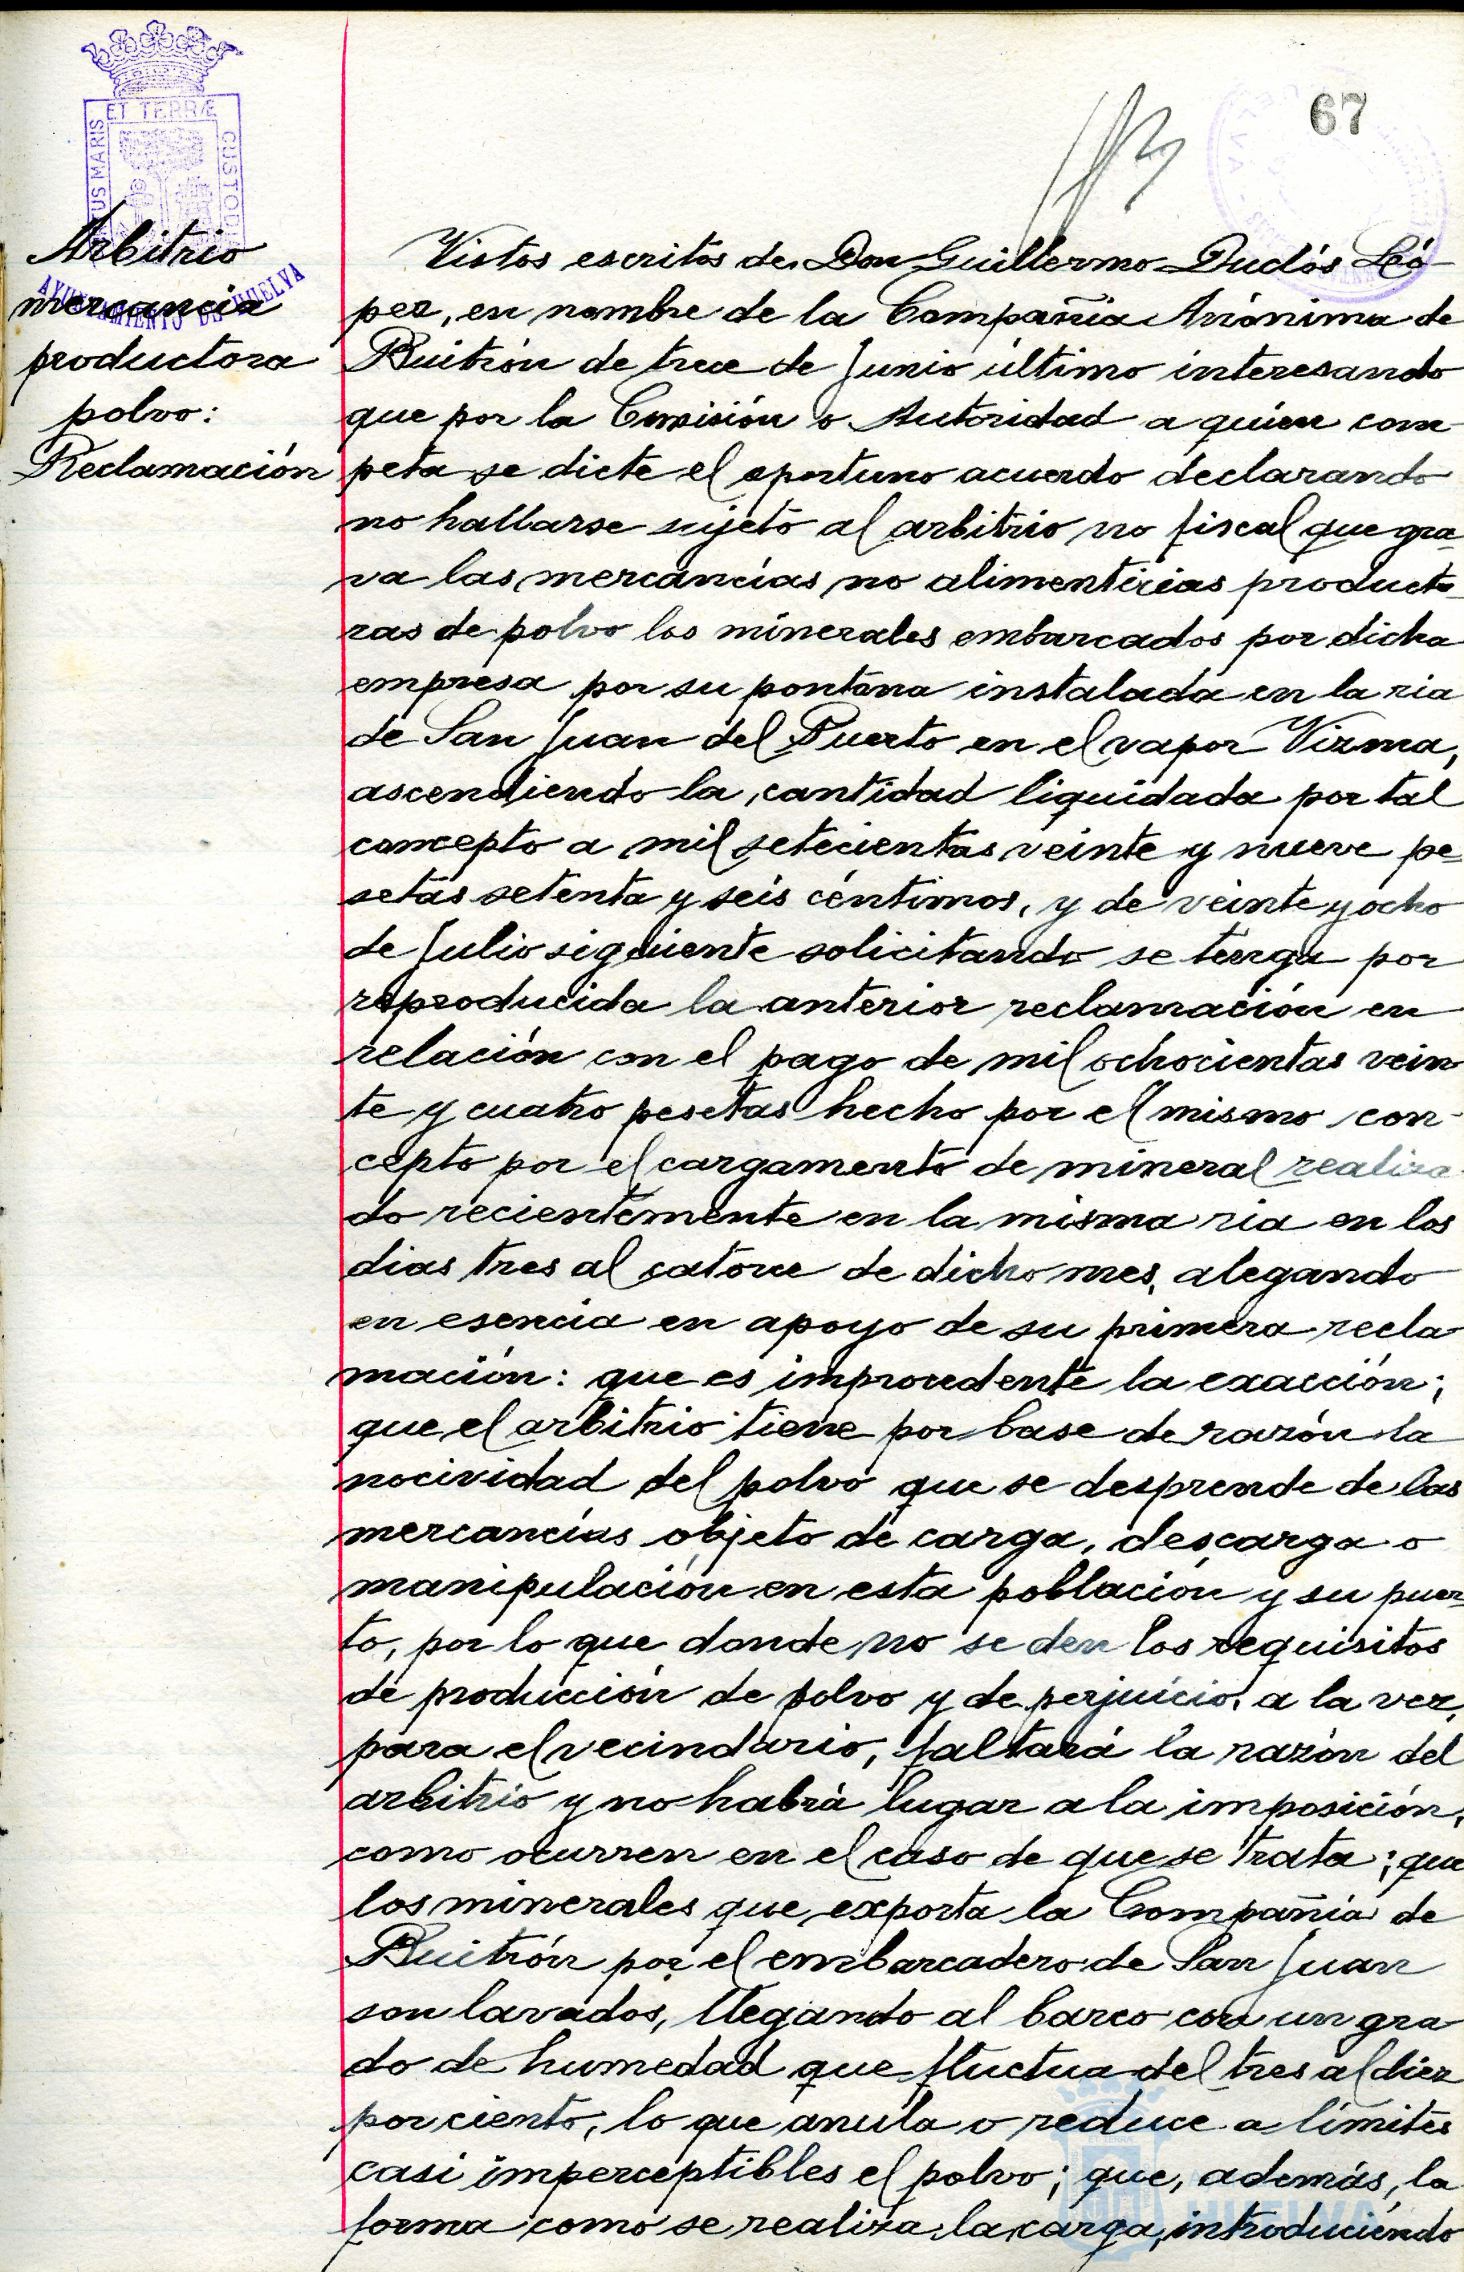 67
ET TERRÆ
PORTUS MARIS
CUSTODIA
AYUNTAMIENTO DE HUELVA
Arbitrio
mercancia
productora
polvo:
Reclamación
Vistos escritos de Don Guillermo Duclós Ló-
pez, en nombre de la Compañia Anónima de
Buitrón de trece de Junio último interesando
que por la Comisión o Autoridad a quien com-
peta se dicte el oportuno acuerdo declarando
no hallarse sujeto al arbitrio no fiscal que gra-
va las mercancías no alimenticias producto-
ras de polvo los minerales embarcados por dicha
empresa por su pontona instalada en la ria
de San Juan del Puerto en el vapor Vizma,
ascendiendo la cantidad liquidada por tal
concepto a mil setecientas veinte y nueve pe-
setas setenta y seis céntimos, y de veinte y ocho
de Julio siguiente solicitando se tenga por
reproducida la anterior reclamación en
relación con el pago de mil ochocientas vein
te y cuatro pesetas hecho por el mismo con-
cepto por el cargamento de mineral realiza-
do recientemente en la misma ria en los
dias tres al catorce de dicho mes, alegando
en esencia en apoyo de su primera recla-
mación: que es improcedente la exacción;
que el arbitrio tiene por base de razón la
nocividad del polvo que se desprende de las
mercancías objeto de carga, descarga o
manipulación en esta población y su puer-
to, por lo que donde no se den los requisitos
de producción de polvo y de perjuicio, a la vez,
para el vecindario, faltará la razón del
arbitrio y no habrá lugar a la imposición,
como ocurren en el caso de que se trata; que
los minerales que exporta la Compañia de
Buitrón por el embarcadero de San Juan
son lavados, llegando al barco con un gra
do de humedad que fluctua del tres al diez
por ciento, lo que anula o reduce a límites
casi imperceptibles el polvo; que, además, la
forma como se realiza la carga, introduciendo
HUELVA